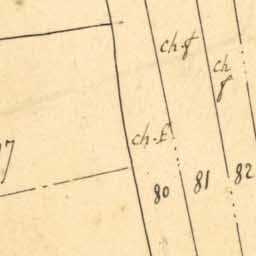 ch. f
ch
f
ch. f
7
80
81
82